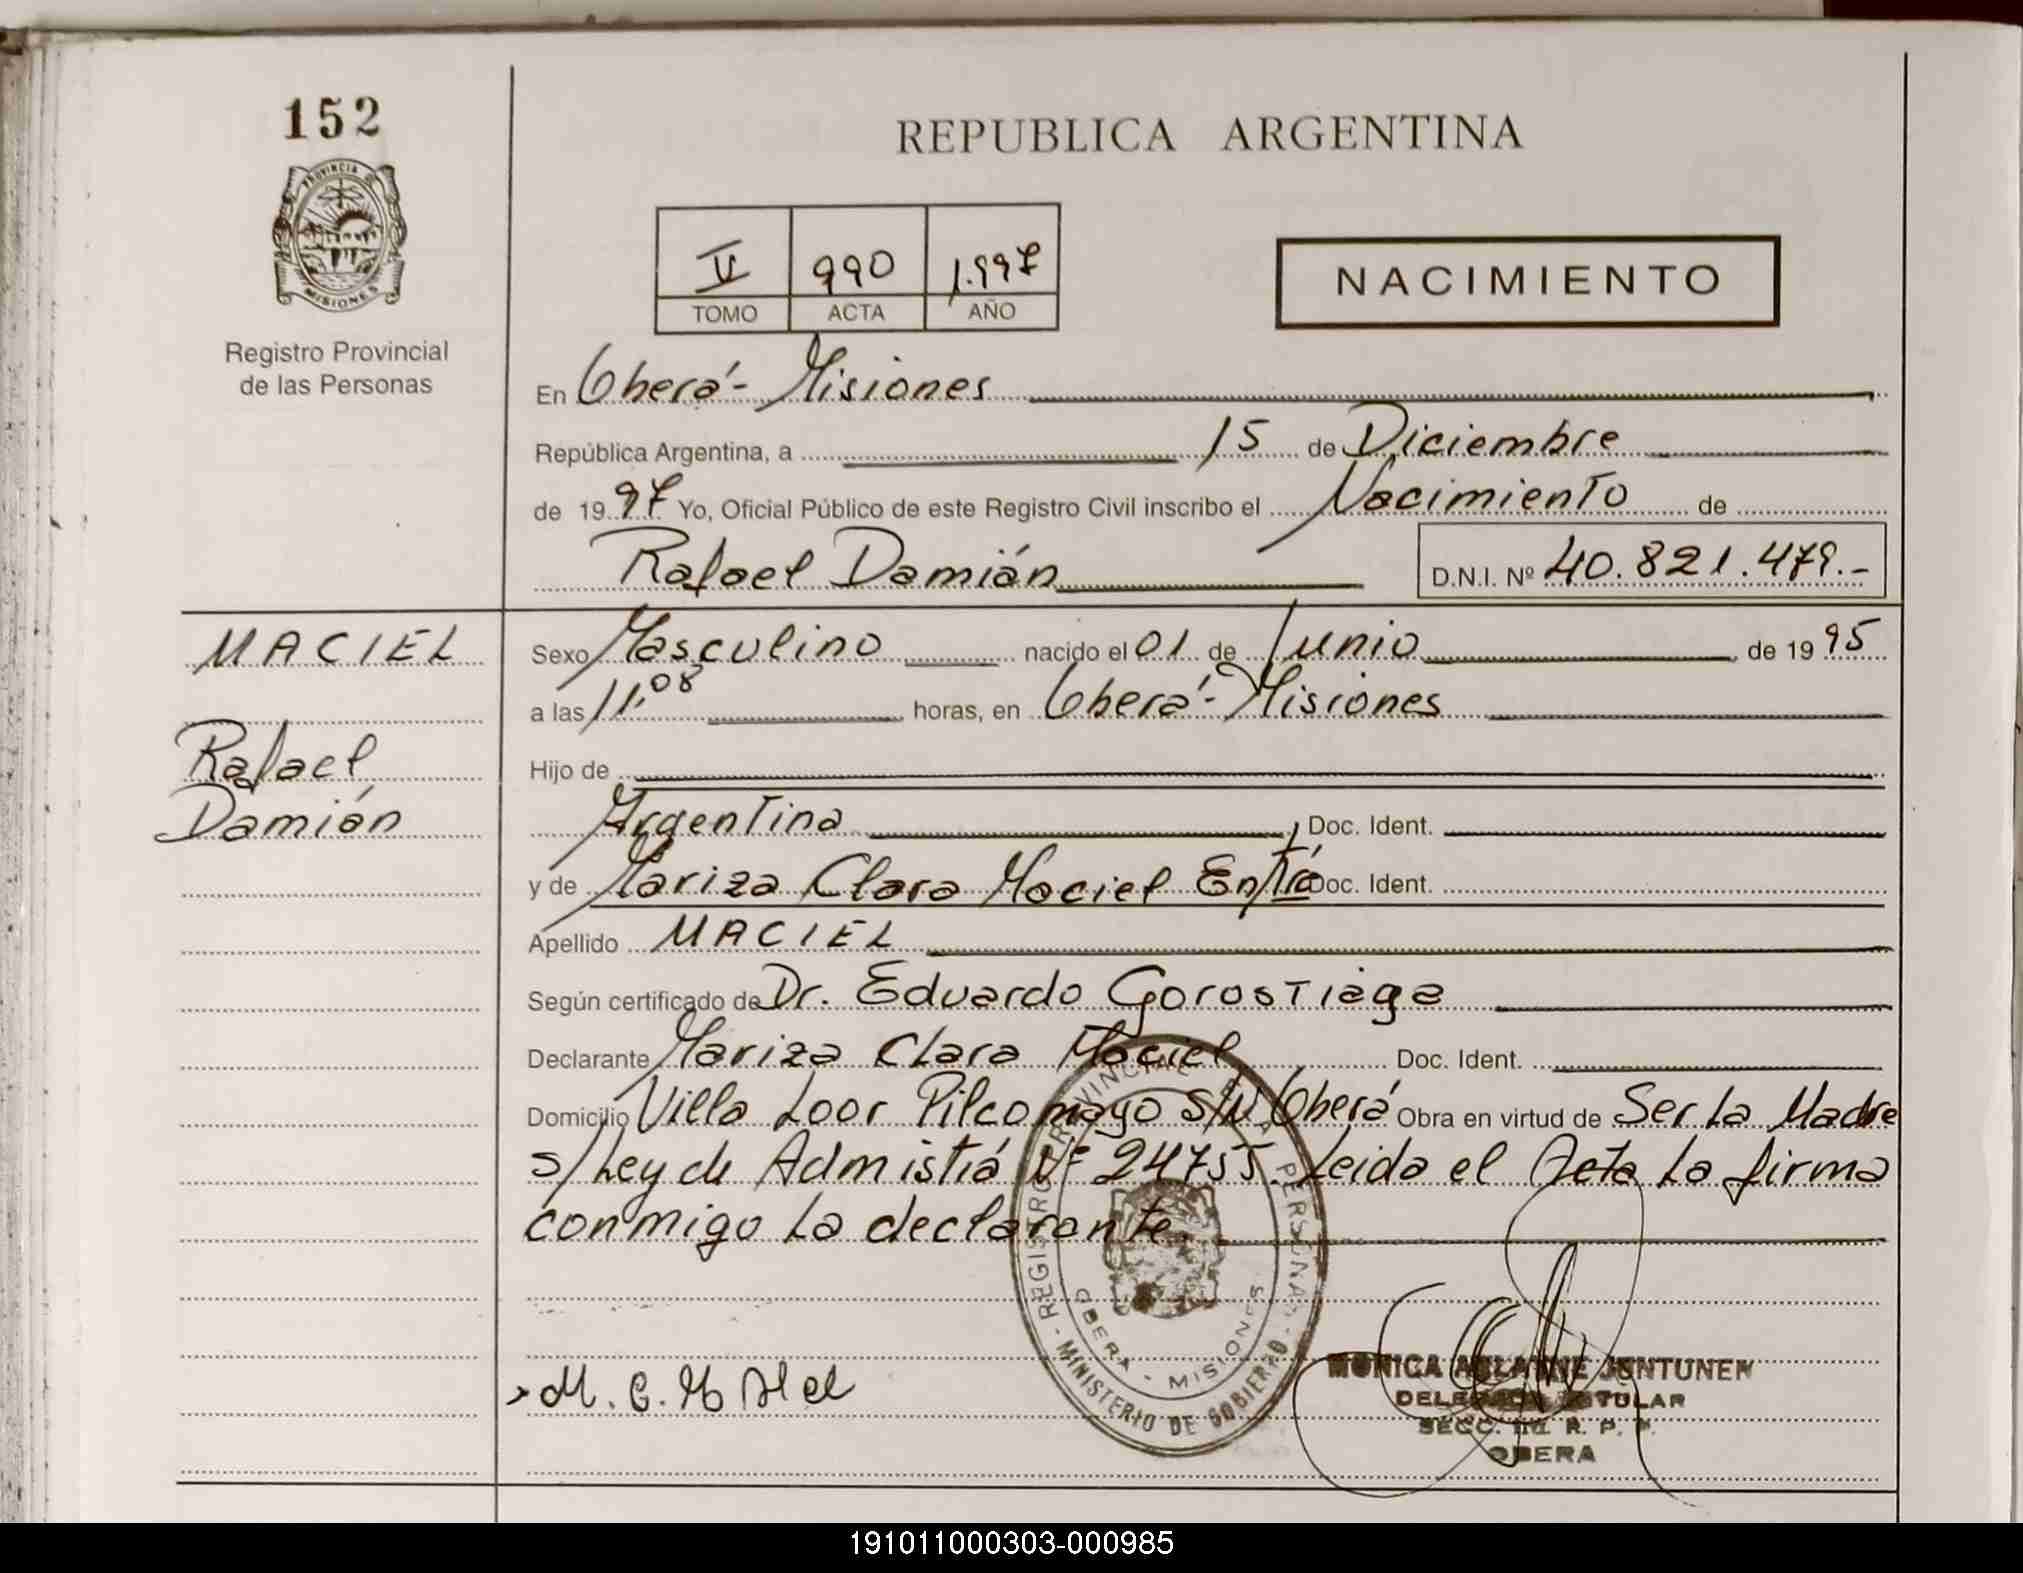 152
REPUBLICA ARGENTINA
PROVINCIA DE
MISIONES
V 990 1.997
TOMO ACTA AÑO
NACIMIENTO
Registro Provincial
de las Personas
En Oberá - Misiones
República Argentina, a 15 de Diciembre
de 1997 Yo, Oficial Público de este Registro Civil inscribo el Nacimiento de
Rafael Damián D.N.I. Nº 40.821.479.-
MACIEL
Rafael
Damián
Sexo Masculino nacido el 01 de Junio de 1995
a las 11,08 horas, en Oberá - Misiones
Hijo de
Argentina Doc. Ident.
y de Mariza Clara Maciel Doc. Ident.
Apellido MACIEL
Según certificado de Dr. Eduardo Gorostiaga
Declarante Mariza Clara Maciel Doc. Ident.
Domicilio Villa Loor Pilcomayo S/N Oberá Obra en virtud de Ser La Madre
s/Ley de Admistiá Nº 24755. Leida el Acta La firma
conmigo La declarante.
REGISTRO PROVINCIAL PERSONAS
OBERA - MISIONES
- MINISTERIO DE GOBIERNO -
M. C.
MONICA JUNTUNEN
TITULAR
SECC. R. P. P.
OBERA
191011000303-000985